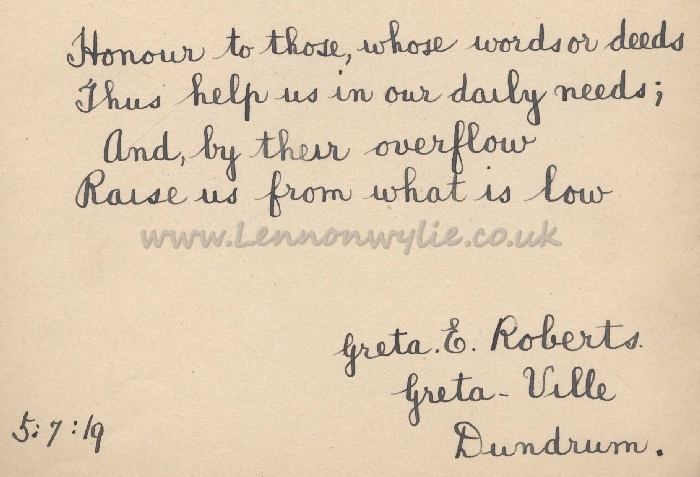 Honour to those, whose words or deeds
Thus help us in our daily needs;
And, by their overflow
Raise us from what is low
www.Lennonwylie.co.uk
Greta. E. Roberts.
Greta - Ville
Dundrum.
5:7:19